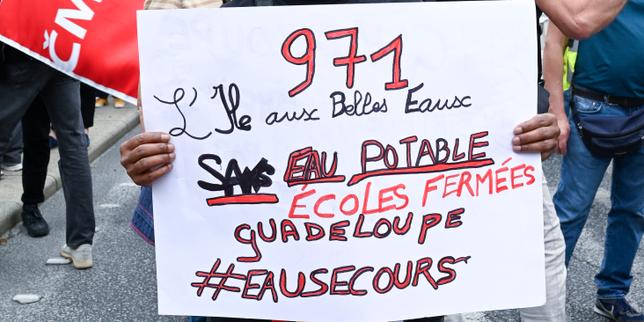 ČM
971
L'Ile aux Belles Eaux
SANS EAU POTABLE
ÉCOLES FERMÉES
GUADELOUPE
#EAUSECOURS